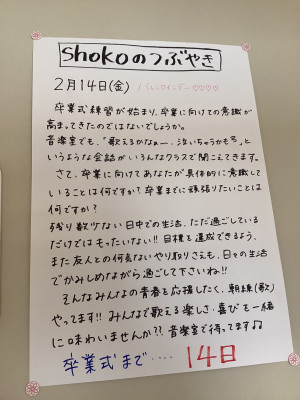 shokoのつぶやき
2月14日(金) バレンタインデー♡♡♡♡
卒業式練習が始まり、卒業に向けての意識が
高まってきたのではないでしょうか。
音楽室でも、"歌えるかなぁー、泣いちゃうかも"と
いうような会話がいろんなクラスで聞こえてきます。
さて、卒業に向けてあなたが具体的に意識して
いることは何ですか?卒業までに頑張りたいことは
何ですか?
残り数少ない日中での生活、ただ過ごしている
だけではもったいない!!目標を達成できるよう、
また友人との何気ないやり取りさえも、日々の生活
でかみしめながら過ごして下さいね!!
そんなみんなの青春を応援したく、朝練(歌)
やってます!!みんなで歌える楽しさ・喜びを一緒
に味わいませんか??音楽室で待ってます♫
卒業式まで・・・・14日